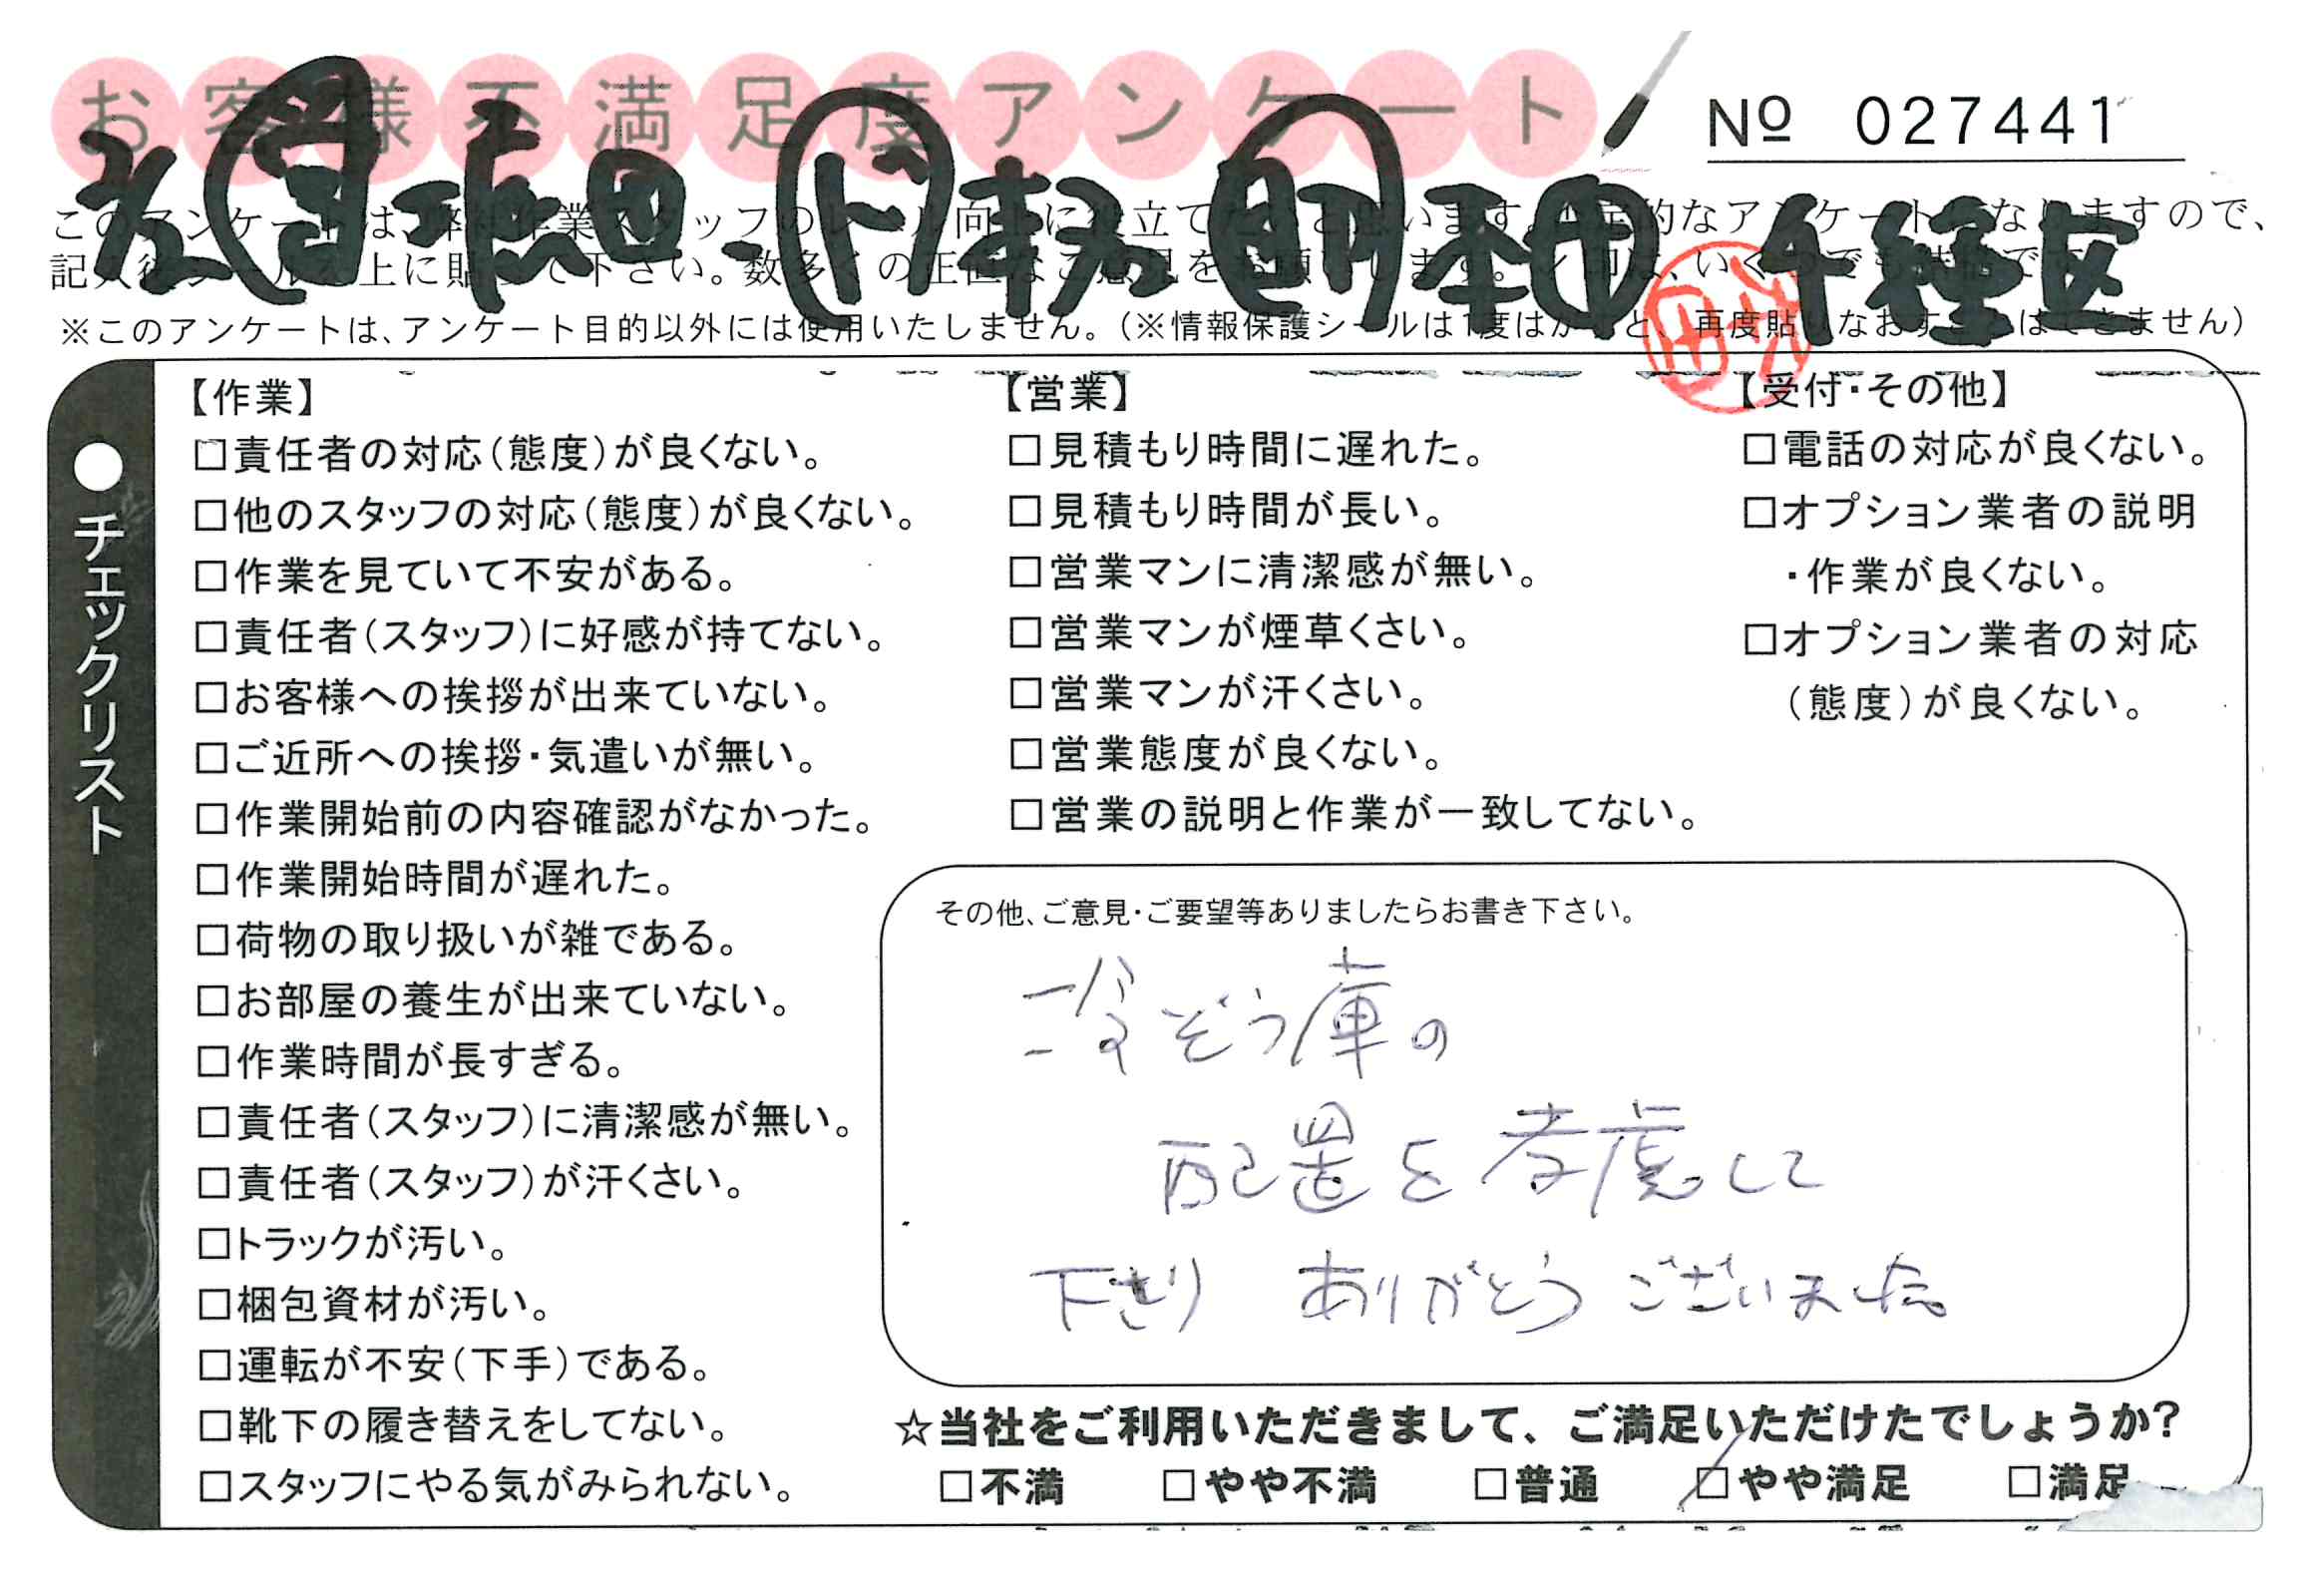 お客様不満足度アンケート
№ 027441
千種区
※このアンケートは、アンケート目的以外には使用いたしません。(※情報保護シールは1度はがすと、再度貼りなおすことはできません)
●チェックリスト
【作業】
□責任者の対応(態度)が良くない。
□他のスタッフの対応(態度)が良くない。
□作業を見ていて不安がある。
□責任者(スタッフ)に好感が持てない。
□お客様への挨拶が出来ていない。
□ご近所への挨拶・気遣いが無い。
□作業開始前の内容確認がなかった。
□作業開始時間が遅れた。
□荷物の取り扱いが雑である。
□お部屋の養生が出来ていない。
□作業時間が長すぎる。
□責任者(スタッフ)に清潔感が無い。
□責任者(スタッフ)が汗くさい。
□トラックが汚い。
□梱包資材が汚い。
□運転が不安(下手)である。
□靴下の履き替えをしてない。
□スタッフにやる気がみられない。
【営業】
□見積もり時間に遅れた。
□見積もり時間が長い。
□営業マンに清潔感が無い。
□営業マンが煙草くさい。
□営業マンが汗くさい。
□営業態度が良くない。
□営業の説明と作業が一致してない。
【受付・その他】
□電話の対応が良くない。
□オプション業者の説明
・作業が良くない。
□オプション業者の対応
(態度)が良くない。
その他、ご意見・ご要望等ありましたらお書き下さい。
冷ぞう庫の
配置を考慮して
下さり ありがとうございました。
☆当社をご利用いただきまして、ご満足いただけたでしょうか?
□不満 □やや不満 □普通 □やや満足 □満足